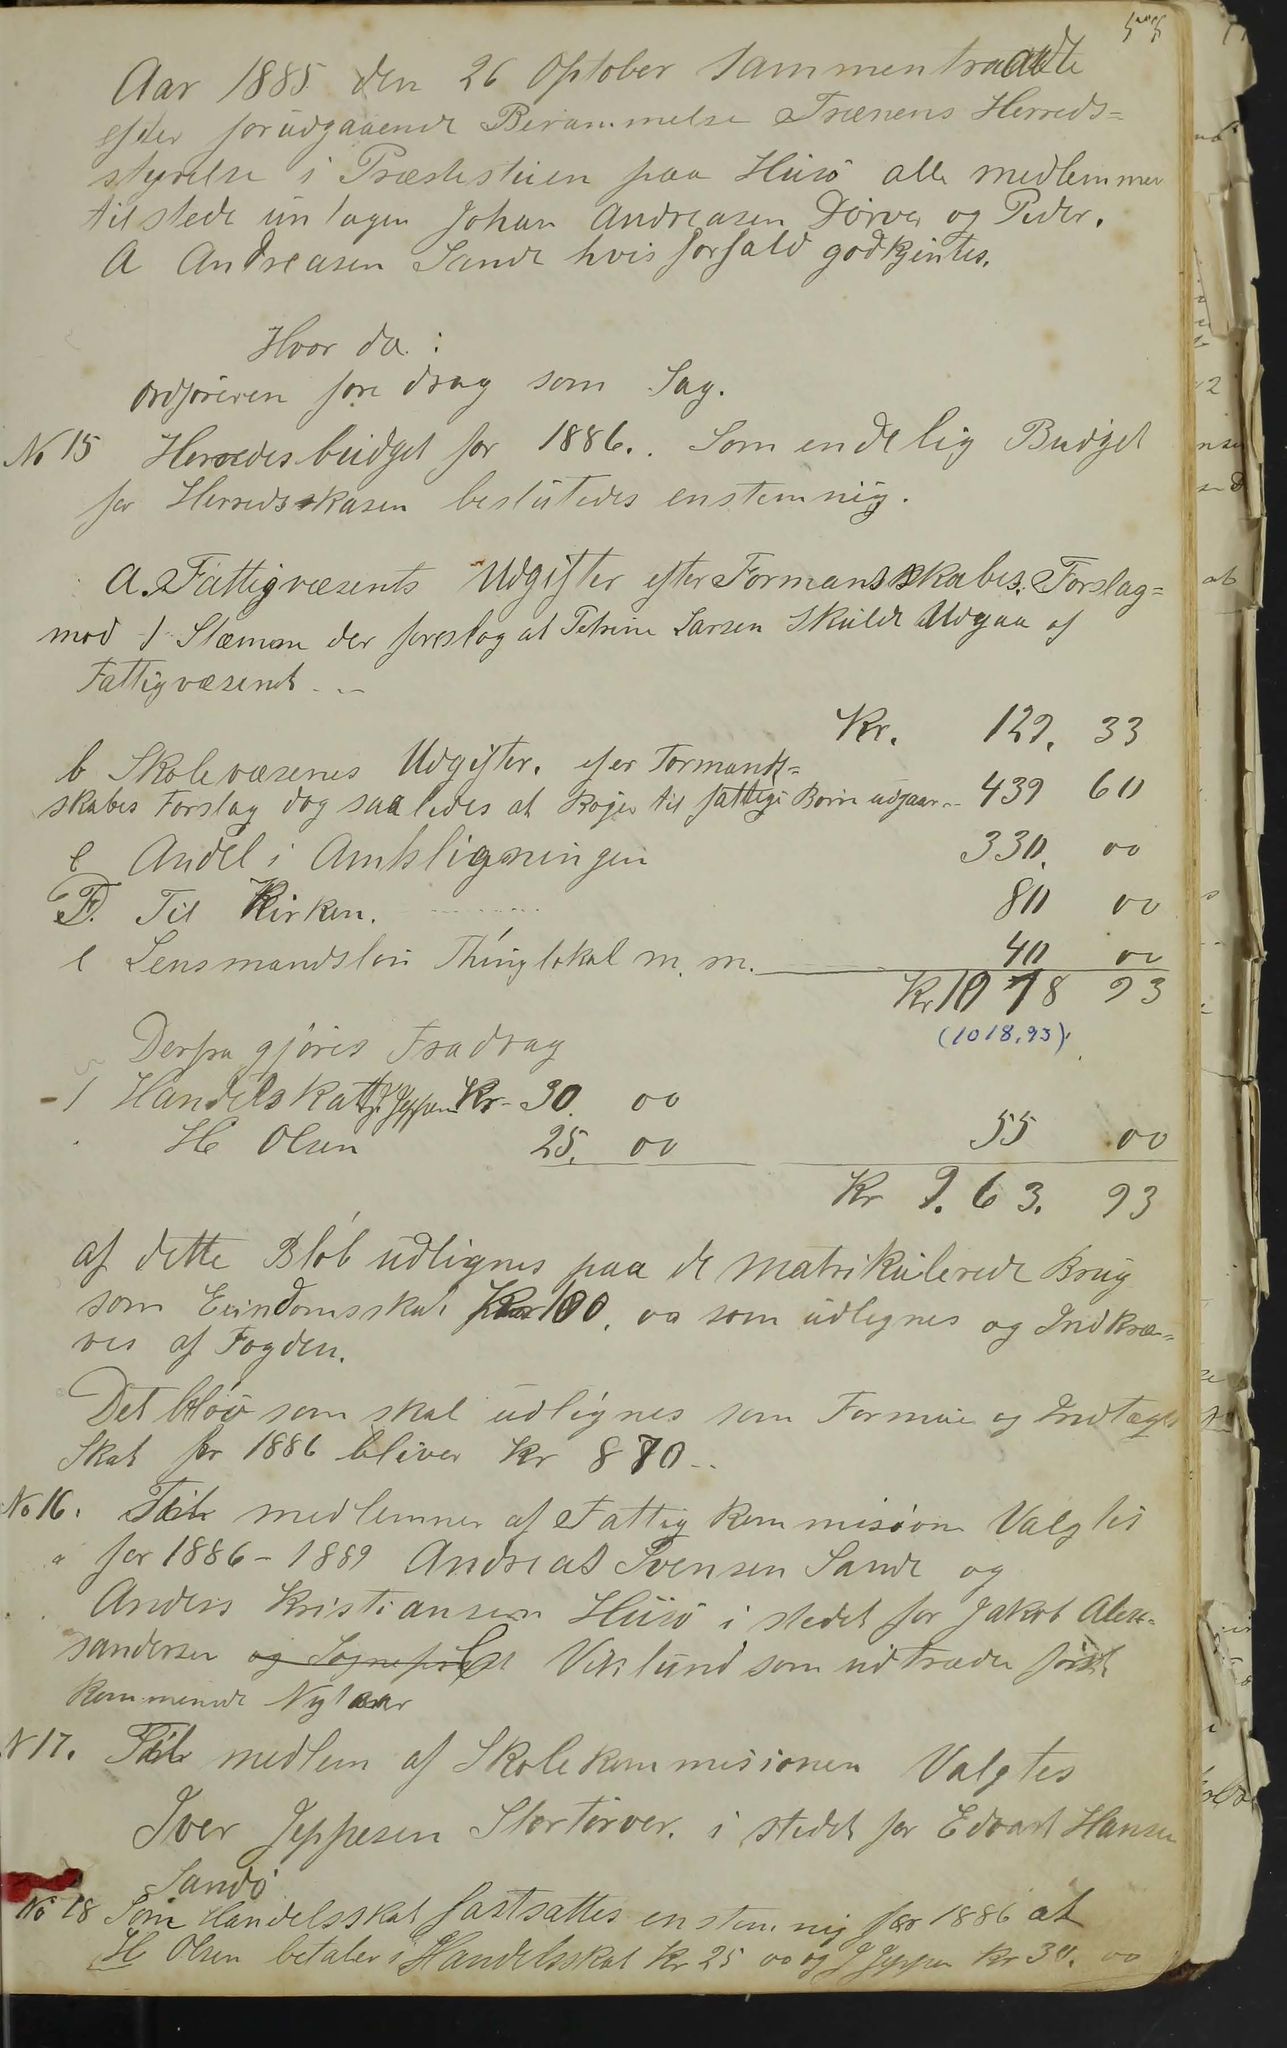 Aar 1885 den 26 Oktober Sammentraadte
efter forudgaaende Berammelse Trænens Herreds=
styrelse i Præstestuen paa Husö alle medlemmer
tilstede untagen Johan Andreasen Dörvær og Peder.
A Andreasen Sande hvis forfald godkjentes.
Hvor da :
ordföreren fore drag som Sag.
No 15 Herredesbudget for 1886. . Som endelig Budget
for Herredsskasen beslutedes enstemmig.
a. Fattigvæsents Udgifter efter Formansskabes. Forslag=
mod 1 Stæmme der foreslog at Petrine Larsen Skulde Udgaa af
Fattigvæsenet - -
Kr. 129. 33
b Skolevæsenes Udgifter. efer Formands=
skabes Forslag dog saaledes at Böger til fattige Börn udgaar - 439 60
c Andel i Amtsligningen 330. 00
D. Til Kirken. 80 00
e Lensmandslön Thinglokal m. m. 40 00
Kr 1018 93
(1018,93)
Derfra gjöres Fradrag
- 1 Handelskat J Jeppesen Kr - 30. 00
H Olsen 25. 00 55 00
Kr 9.63. 93
af dette Blöb udlignes paa de Matrikulerede Brug
som Eiendomsskat Kr 100. 00 som udlignes og Indkræ=
ves af Fogden.
Det blöb som skal udlignes som Formue og Indtægts
Skat for 1886 bliver Kr 870 - -
No 16. Til medlemmer af Fattig kommisionen Valgtes
for 1886 - 1889 Andreas Svensen Sande og
Anders Kristiansen Husö i stedet for Jakob Alek=
sandersen og Sogneprest Viklund som udtræder först
kommende Nytaar
N 17. Til medlem af Skolekommisionen Valgtes
Iver Jeppesen Stortörver. i stedet for Edvart Hansen
Sandö
No 18 Som Handelsskat fastsattes enstemmig for 1886 at
H Olsen betaler i Handelsskat Kr 25 00 og J Jeppesen Kr 30. 00